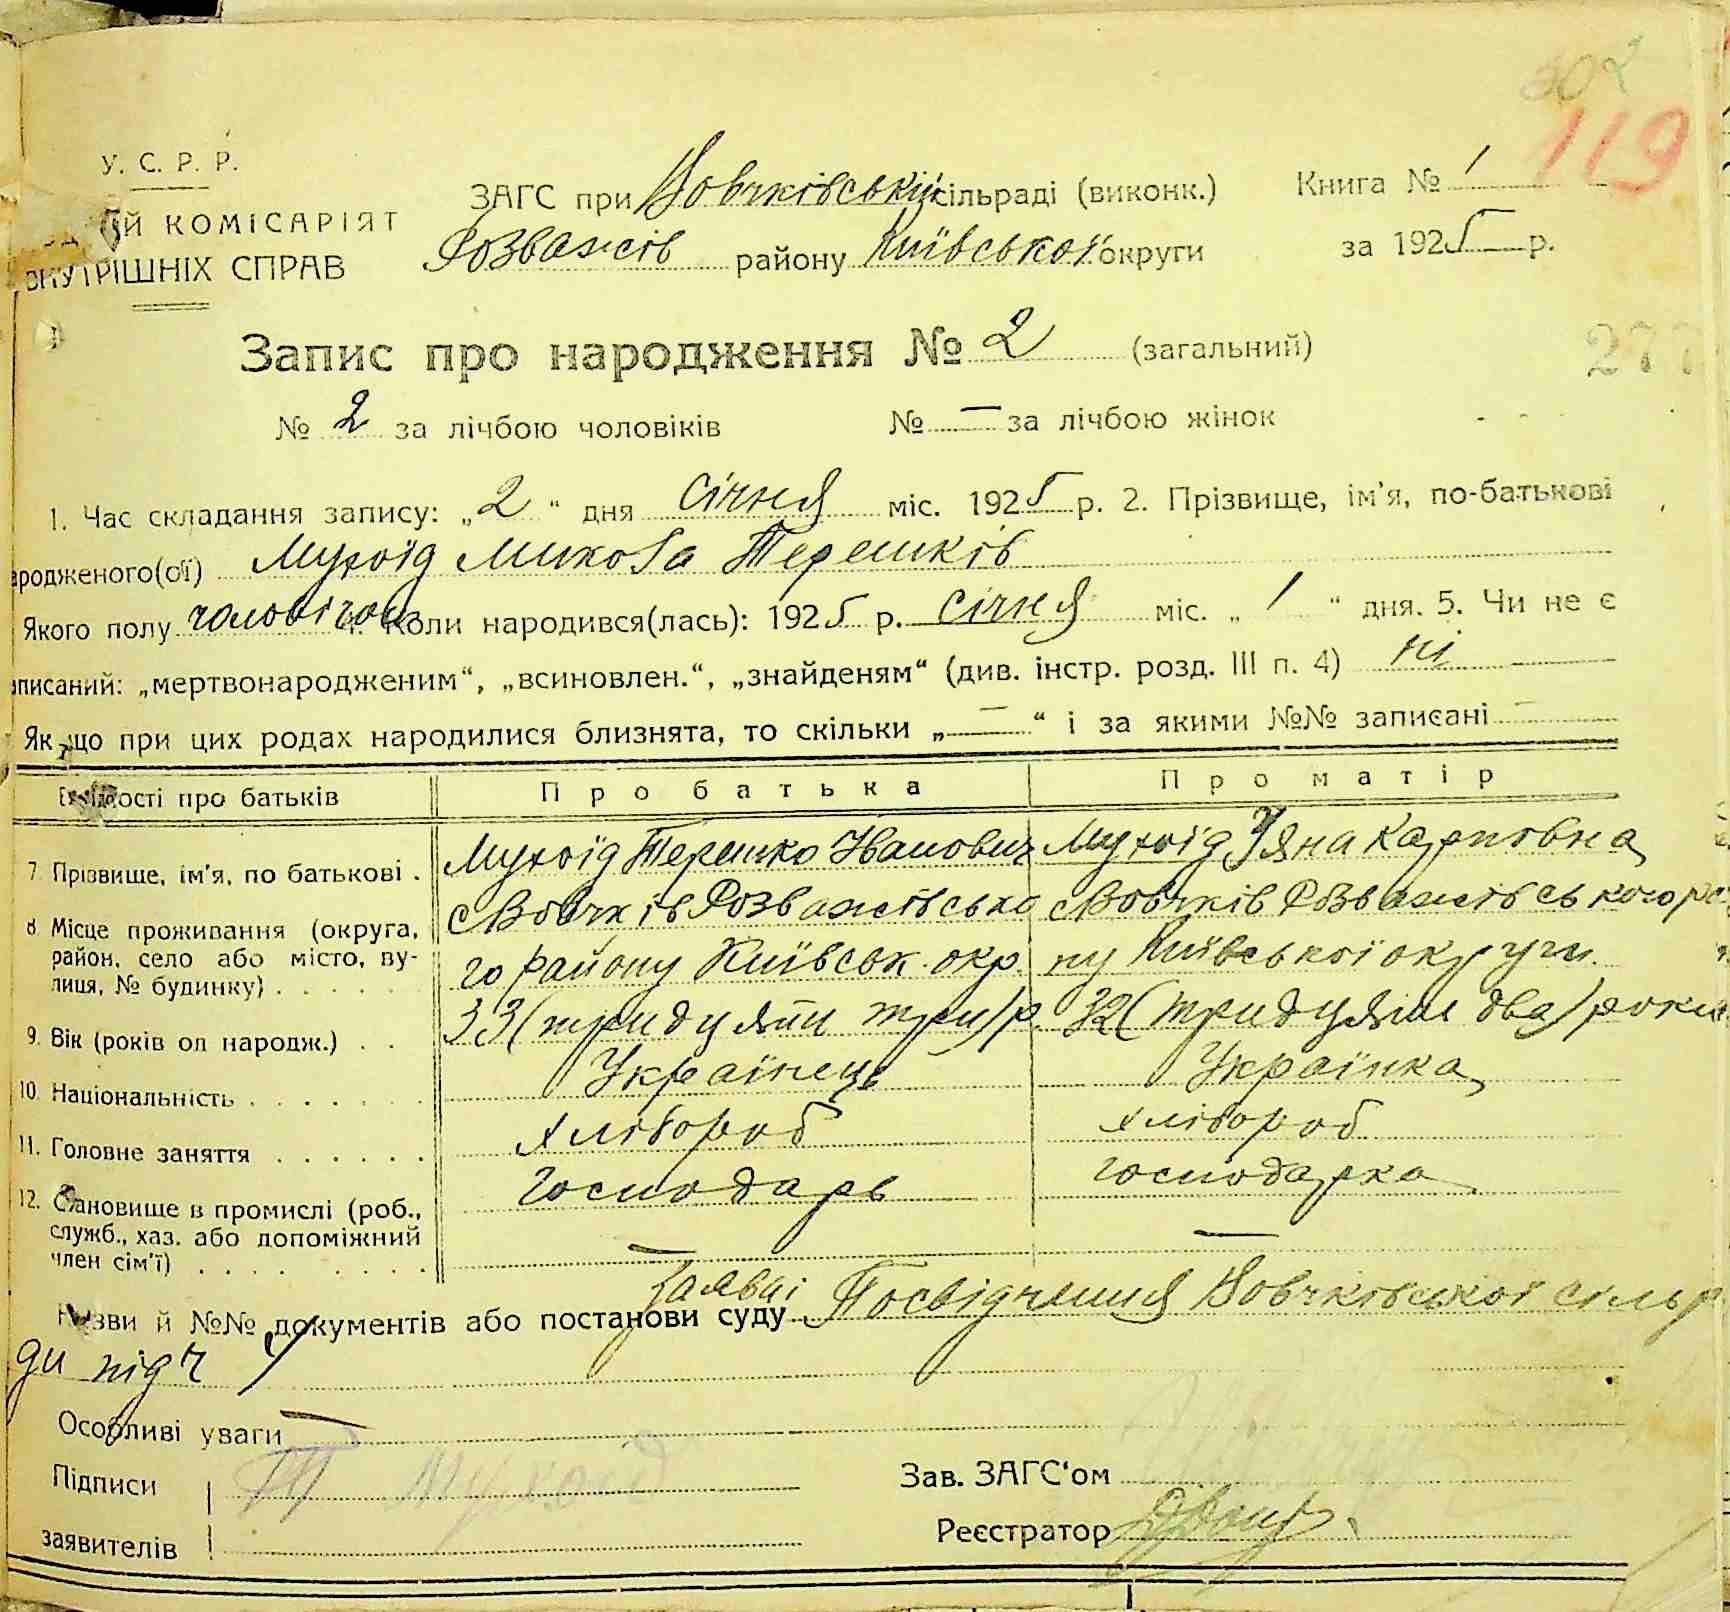 502
119
У. С. Р. Р.
ЗАГС при Вовчківській сільраді (виконк.) Книга № 1
КОМІСАРІЯТ
Розважів району Київської округи за 1925 р.
ВНУТРІШНІХ СПРАВ
Запис про народження № 2 (загальний)
277
№ 2 за лічбою чоловіків № — за лічбою жінок
1. Час складання запису: „2“ дня Січня міс. 1925 р. 2. Прізвище, ім'я, по-батькові
ародженого(ої) Мухоїд Микола Терешків
Якого полу чоловічого 4. Коли народився(лась): 1925 р. Січня міс. „1“ дня. 5. Чи не є
аписаний: „мертвонародженим“, „всиновлен.“, „знайденям“ (див. інстр. розд. III п. 4) ні
Якщо при цих родах народилися близнята, то скільки „—“ і за якими №№ записані —
Відомості про батьків Про батька Про матір
7. Прізвище, ім'я, по батькові . Мухоїд Терешко Іванович Мухоїд Уляна Карповна
8. Місце проживання (округа, с Вовчків Розважівсько с Вовчків Розважівського ра
район, село або місто, ву- го району Київськ. окр. ну Київської округи
лиця, № будинку) . . . . .
9. Вік (років од народж.) . . 33 (тридцять три) р. 32 (тридцять два) роки
10. Національність . . . . . . . Українець Українка
11. Головне заняття . . . . . . Хлібороб Хлібороб
12. Становище в промислі (роб., Господарь Господарка
служб., хаз. або допоміжний
член сім'ї) . . . . . . . . — —
Назви й №№ документів або постанови суду Заявці Посвідчення Вовчківської сільр
ди під ч 1
Особливі уваги —
Підписи Т Мухоїд Зав. ЗАГС'ом
заявителів Реєстратор